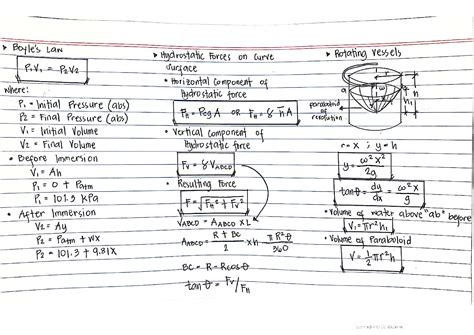 > Boyle's Law
P₁V₁ = P₂V₂
where:
P₁ = Initial Pressure (abs)
P₂ = Final Pressure (abs)
V₁ = Initial Volume
V₂ = Final Volume
• Before Immersion
V₁ = Ah
P₁ = 0 + Patm
P₁ = 101.3 kPa
• After Immersion
V₂ = Ay
P₂ = Patm + wx
P₂ = 101.3 + 9.81x
> Hydrostatic Forces on Curve
surface
• Horizontal Component of
Hydrostatic force
FH = Pcg A or FH = γ h̄ A
• Vertical Component of
Hydrostatic force
FV = γ VABCD
• Resulting Force
F = √FH² + FV²
VABCD = AABCD × L
AABCD = R + BC / 2 × h - πR²θ / 360
BC = R - R cos θ
tan θ = FV / FH
> Rotating Vessels
r
a
ω
h
h₁
paraboloid
of
revolution
r = x ; y = h
y = ω²x² / 2g
tan θ = dy / dx = ω²x / g
• Volume of water above "ab" before
V₁ = πr²h₁
• Volume of Paraboloid
V = 1/2 πr²h